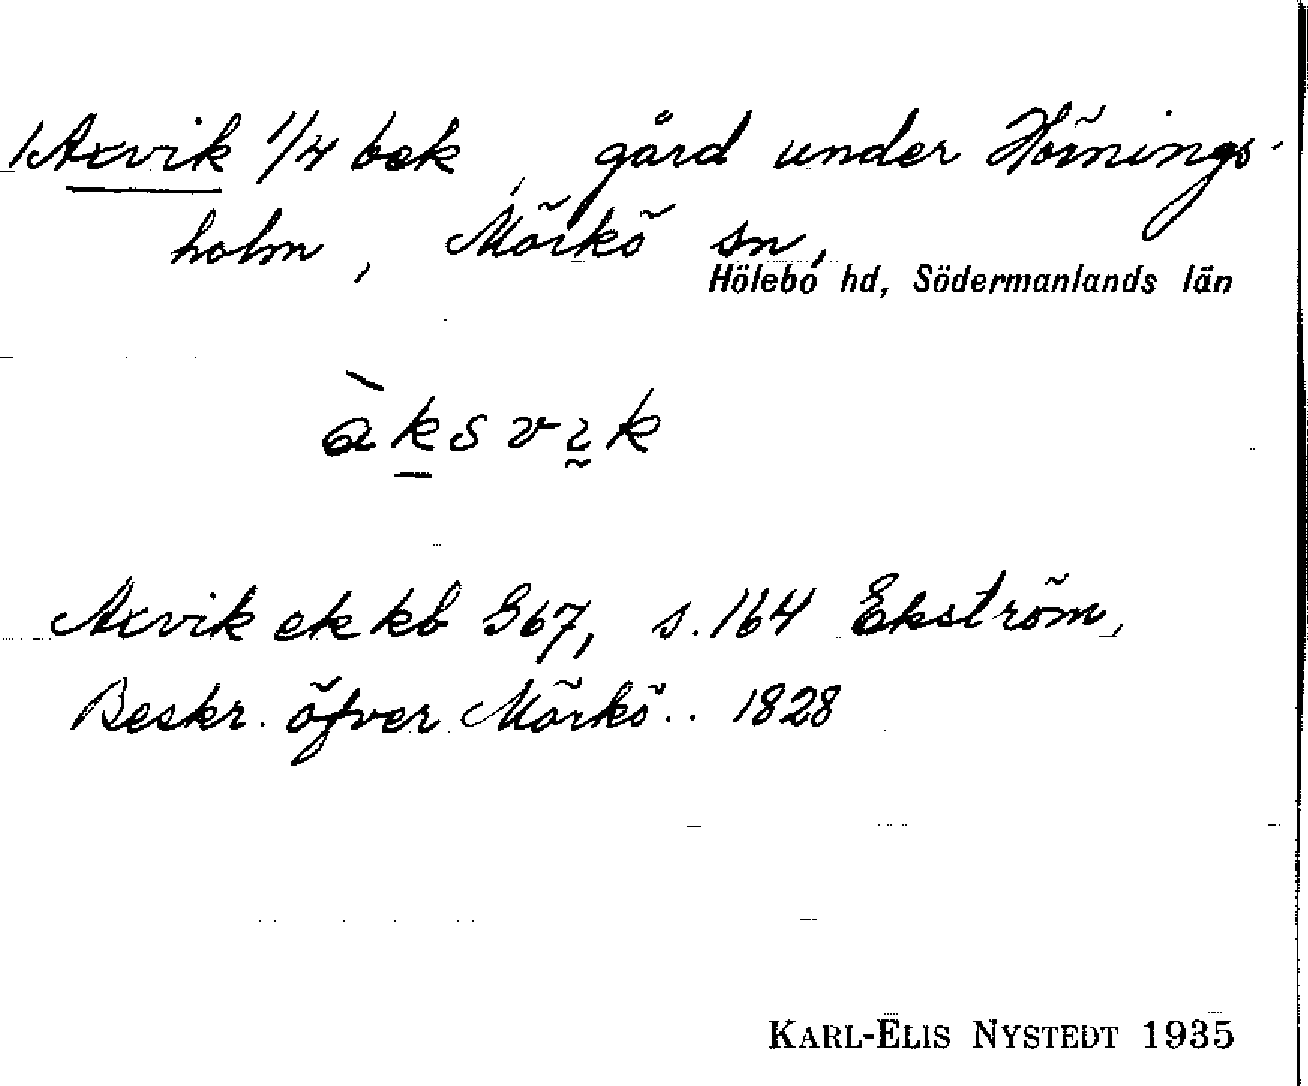 1 Axvik 1/4 bek, gård under Hörnings-
holm, Mörkö sn,
Hölebo hd, Södermanlands län
àksvık
Axvik ek kb 367, s. 164 Ekström,
Beskr. öfver Mörkö.. 1828
KARL-ELIS NYSTEDT 1935